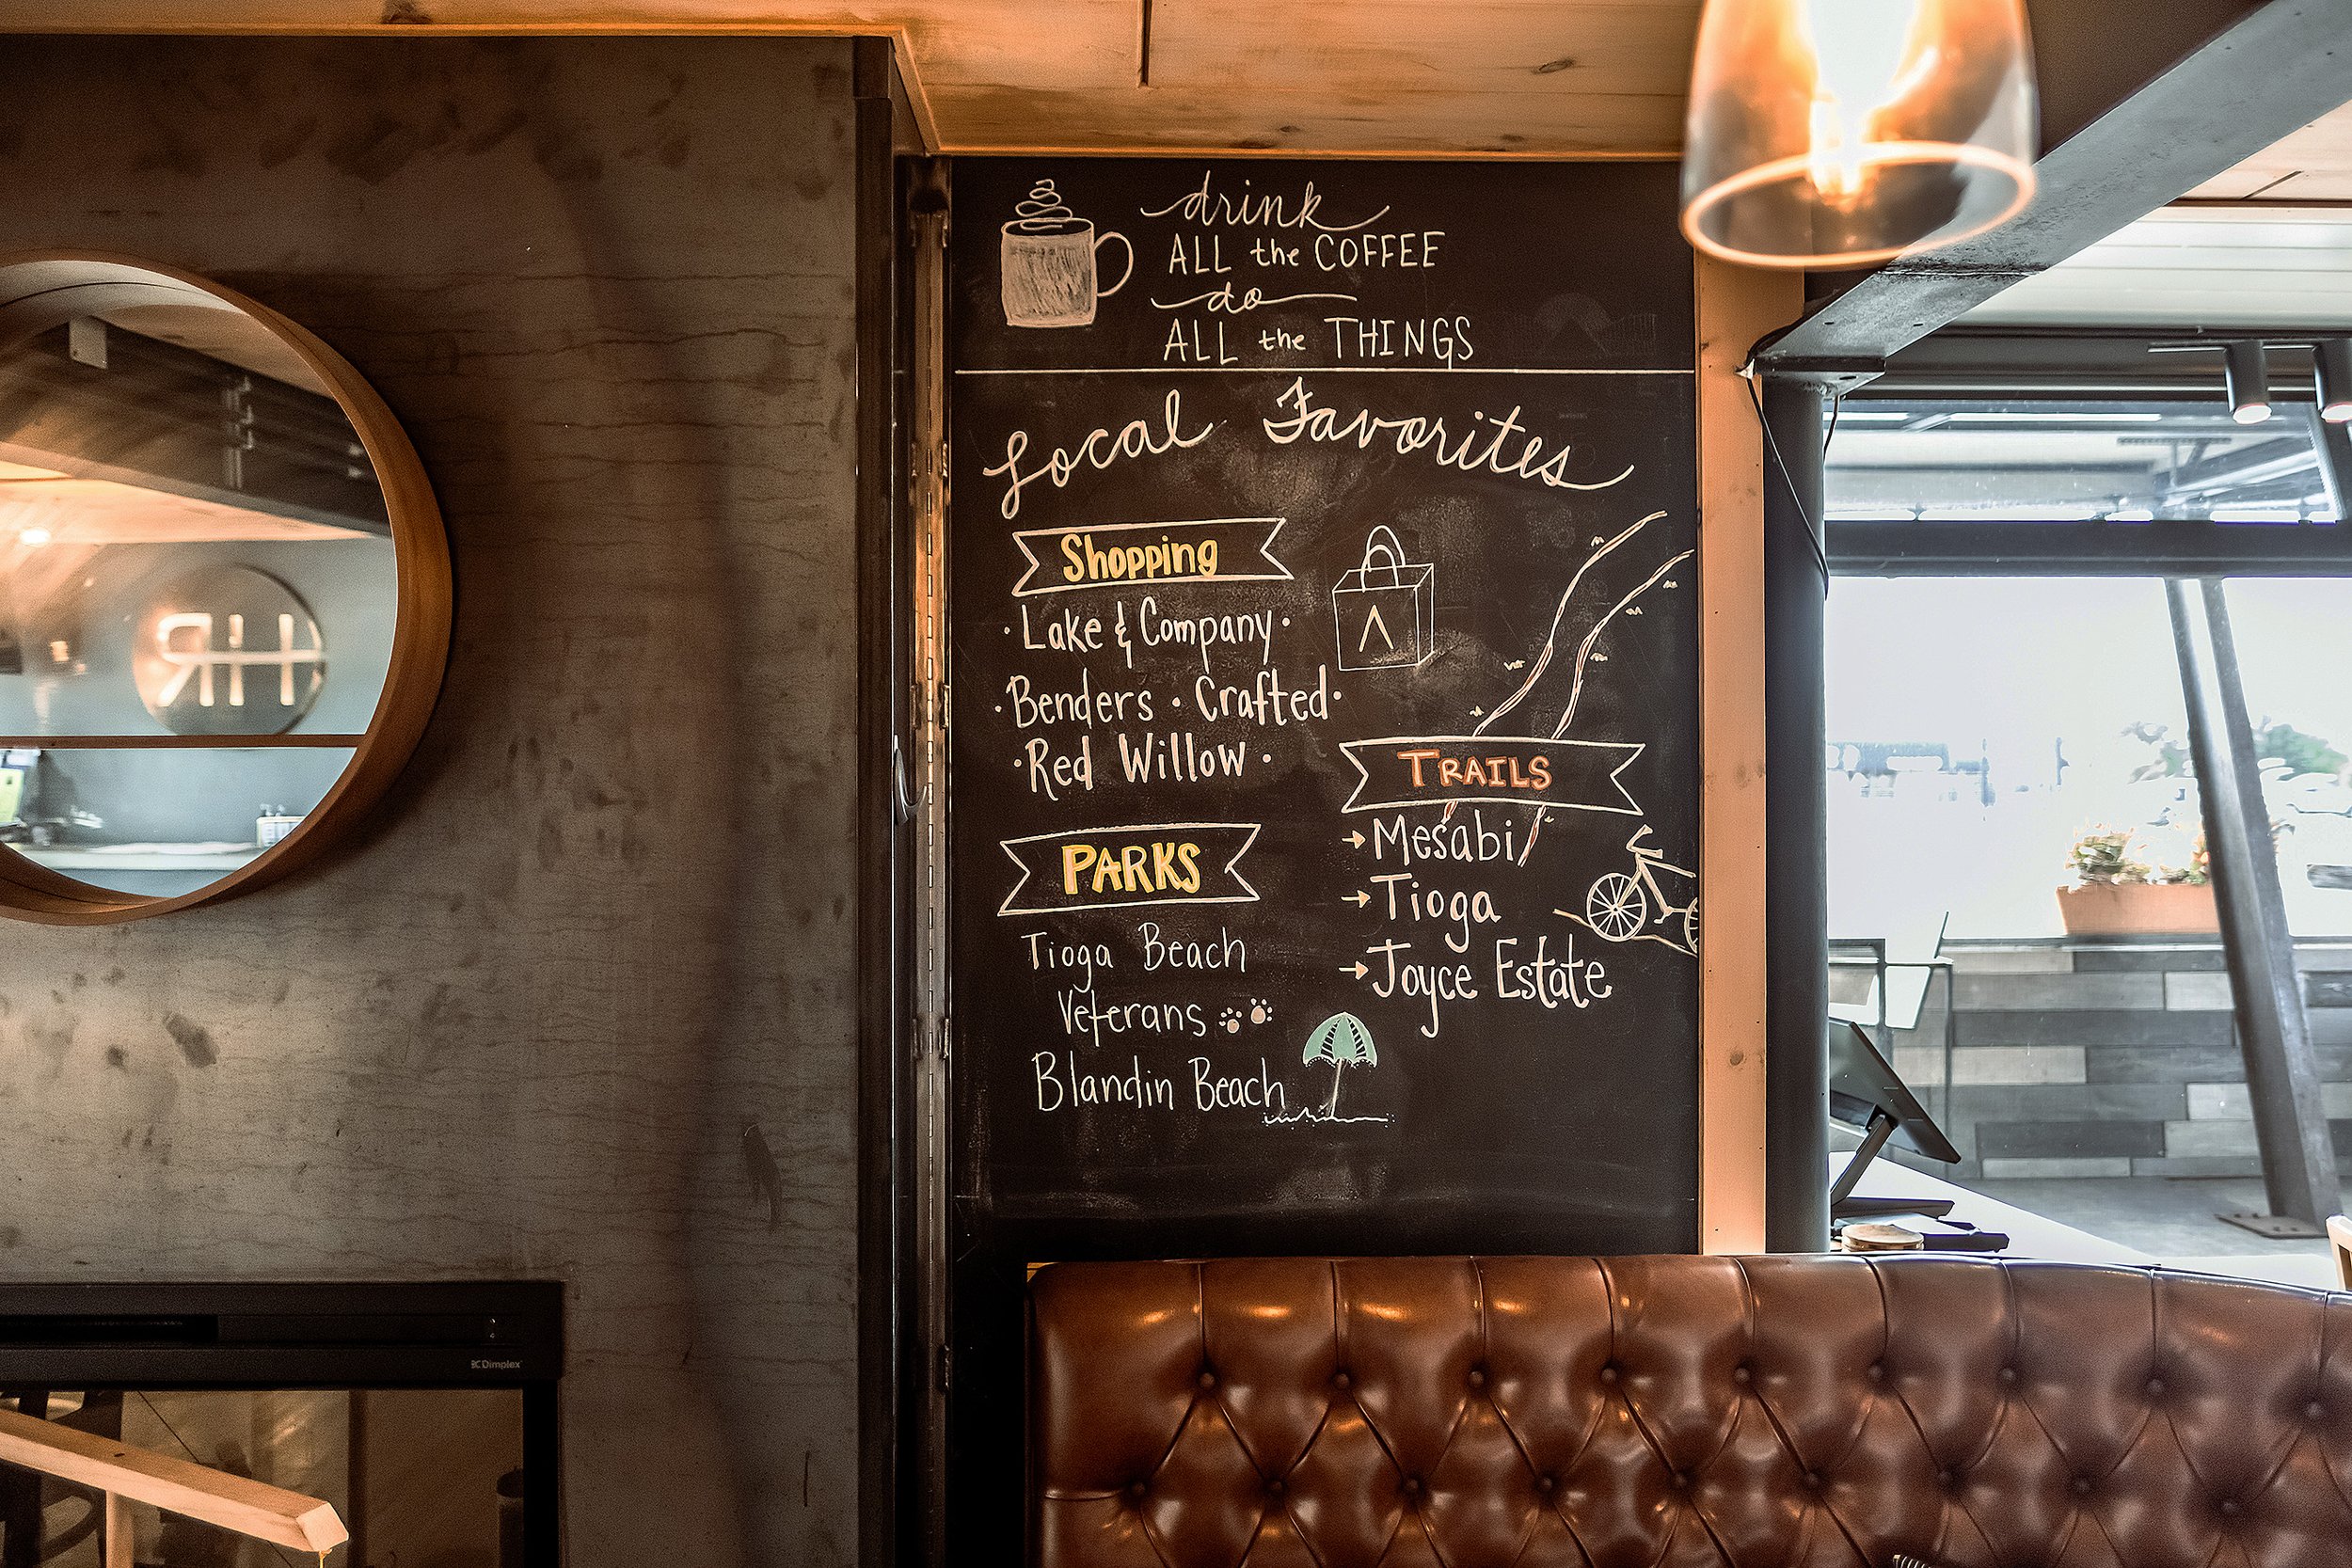 drink
ALL the COFFEE
do
ALL the THINGS
Local Favorites
Shopping
· Lake & Company ·
· Benders · Crafted ·
· Red Willow ·
PARKS
Tioga Beach
Veterans
Blandin Beach
TRAILS
→ Mesabi
→ Tioga
→ Joyce Estate
Dimplex